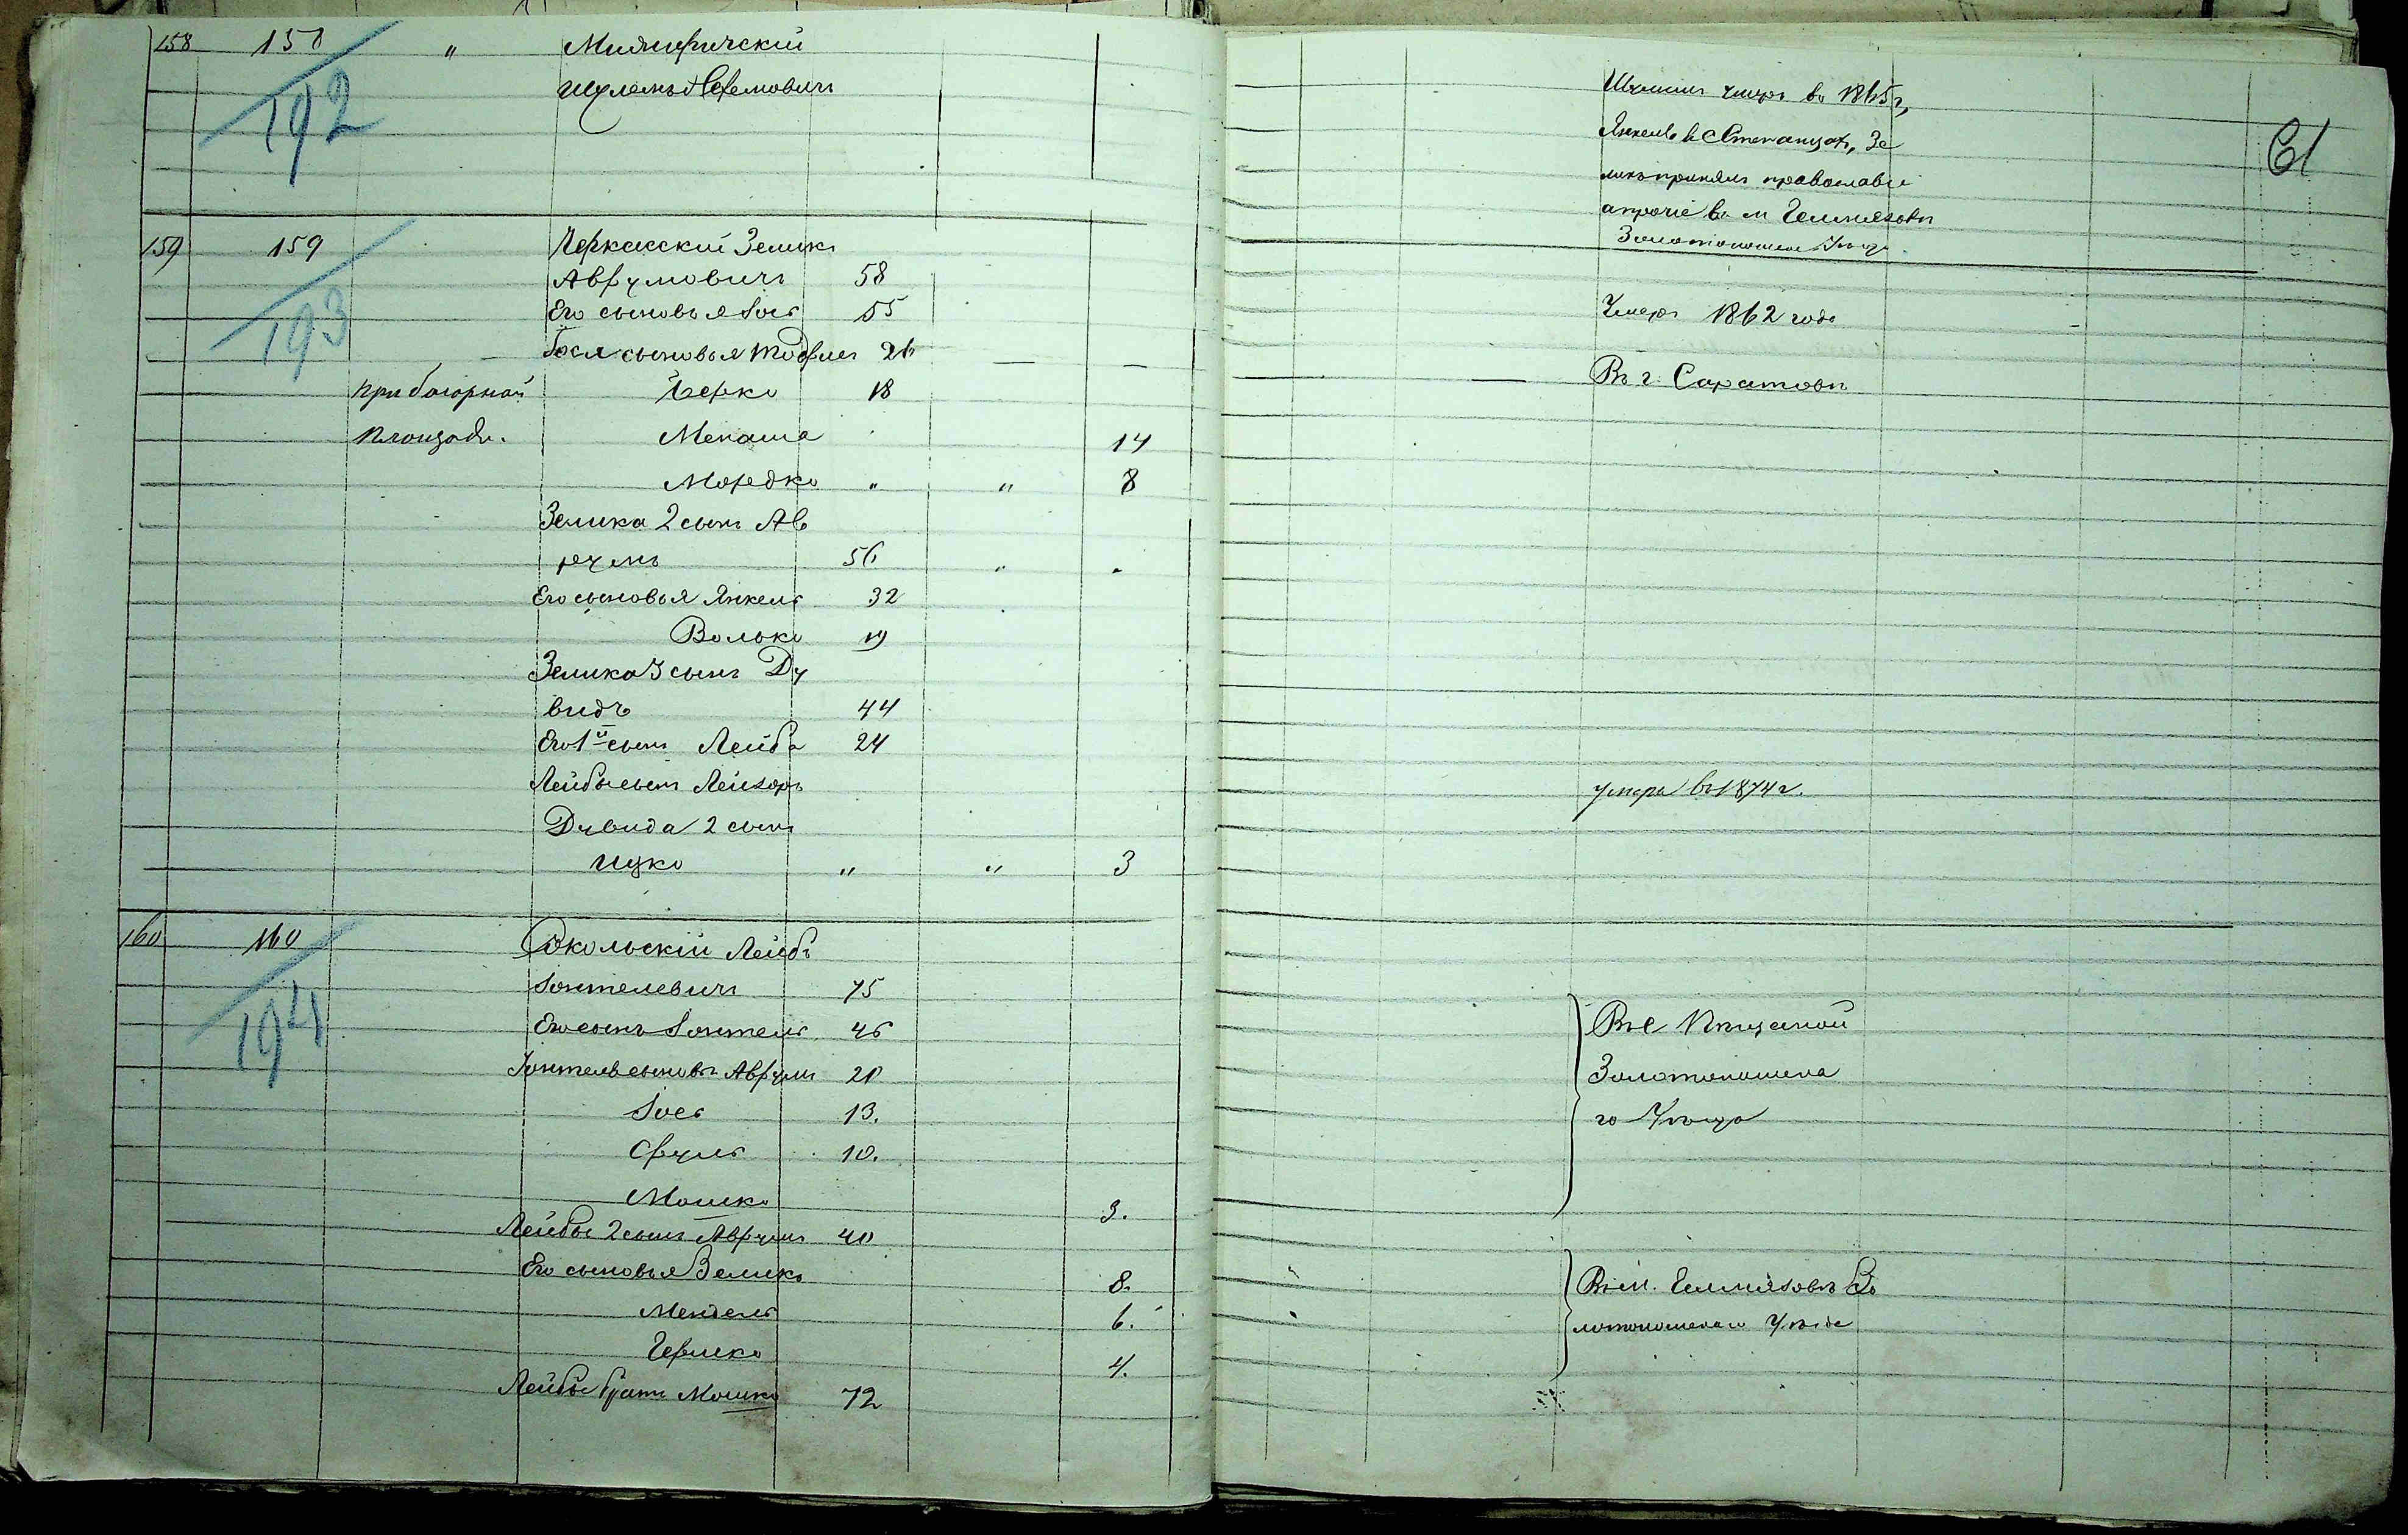 158 158 " Межиричскій
Шулемъ Хаемовичъ
192
159 159 Черкасскій Зеликъ
Аврумовичъ 58
193
Его сыновья Іось 55
Іося сыновья 26
При базарной Берко 18
площади. Менаше 14
Мордко " " 8
Зелика 2 сынъ Ав
румъ 56 " "
Его сыновья Янкель 32
Волько 19
Зелика 3 сынъ Ду
видъ 44
Его 1й сынъ Лейба 24
Лейбы сынъ Лейзоръ
Дувида 2 сынъ
Ицко " " 3
160 160 Сокольскій Лейба
Іонтелевичъ 75
194
Его сынъ Іонтель 46
Іонтеля сыновья Аврумъ 20
Іось 13.
Сруль 10.
Мошко 3.
Лейбы 2 сынъ Аврумъ 40
Его сыновья Зеликъ 8.
Мендель 6.
Гершко 4.
Лейбы братъ Мошко 72
61
Шулемъ умеръ въ 1865 г,
Янкель в Степанцахъ, Зе
ликъ принялъ православіе
а прочіе въ м Гельмязовѣ
Золотоношск Уѣзд.
Умеръ 1862 года
Въ г. Саратовѣ
умеръ въ 1874 г.
Въ с Пещаной
Золотоношска
го Уѣзда
Въ м. Гельмязовѣ Зо
лотоношскаго Уѣзда